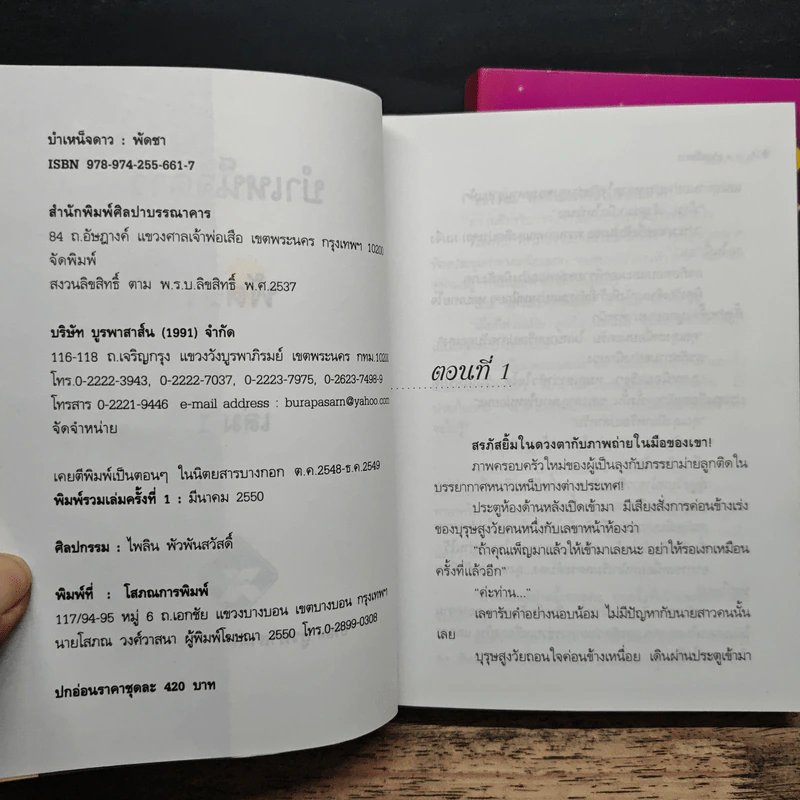 บำเหน็จดาว : พัดชา
ISBN 978-974-255-661-7
สำนักพิมพ์ศิลปาบรรณาคาร
84 ถ.อัษฎางค์ แขวงศาลเจ้าพ่อเสือ เขตพระนคร กรุงเทพฯ 10200
จัดพิมพ์
สงวนลิขสิทธิ์ ตาม พ.ร.บ.ลิขสิทธิ์ พ.ศ.2537
บริษัท บูรพาสาส์น (1991) จำกัด
116-118 ถ.เจริญกรุง แขวงวังบูรพาภิรมย์ เขตพระนคร กทม.10200
โทร.0-2222-3943, 0-2222-7037, 0-2223-7975, 0-2623-7498-9
โทรสาร 0-2221-9446 e-mail address : burapasarn@yahoo.com
จัดจำหน่าย
เคยตีพิมพ์เป็นตอนๆ ในนิตยสารบางกอก ต.ค.2548-ธ.ค.2549
พิมพ์รวมเล่มครั้งที่ 1 : มีนาคม 2550
ศิลปกรรม : ไพลิน พัวพันสวัสดิ์
พิมพ์ที่ : โสภณการพิมพ์
117/94-95 หมู่ 6 ถ.เอกชัย แขวงบางบอน เขตบางบอน กรุงเทพฯ
นายโสภณ วงศ์วาสนา ผู้พิมพ์โฆษณา 2550 โทร.0-2899-0308
ปกอ่อนราคาชุดละ 420 บาท
ตอนที่ 1
สรภัสยิ้มในดวงตากับภาพถ่ายในมือของเขา!
ภาพครอบครัวใหม่ของผู้เป็นลุงกับภรรยาม่ายลูกติดใน
บรรยากาศหนาวเหน็บทางต่างประเทศ!
ประตูห้องด้านหลังเปิดเข้ามา มีเสียงสั่งการค่อนข้างเร่ง
ของบุรุษสูงวัยคนหนึ่งกับเลขาหน้าห้องว่า
"ถ้าคุณเพ็ญมาแล้วให้เข้ามาเลยนะ อย่าให้รอเงกเหมือน
ครั้งที่แล้วอีก"
"ค่ะท่าน..."
เลขารับคำอย่างนอบน้อม ไม่มีปัญหากับนายสาวคนนั้น
เลย
บุรุษสูงวัยถอนใจค่อนข้างเหนื่อย เดินผ่านประตูเข้ามา